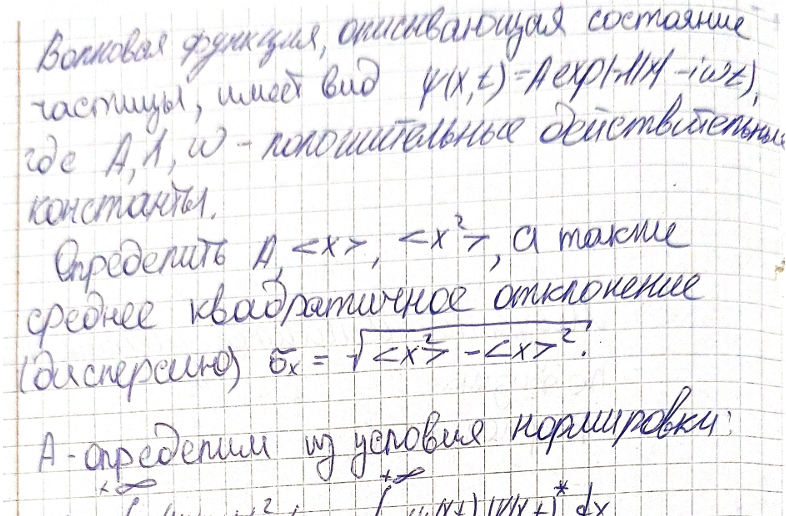 Волновая функция, описывающая состояние
частицы, имеет вид ψ(x,t)=A exp(-λ|x|-iωt),
где A, λ, ω - положительные действительные
константы.
Определить A, <x>, <x²>, а также
среднее квадратичное отклонение
(дисперсию) σₓ = √<x²> - <x>².
A - определим из условия нормировки:
+∞ +∞
ψ(x,t) ψ(x,t)* dx